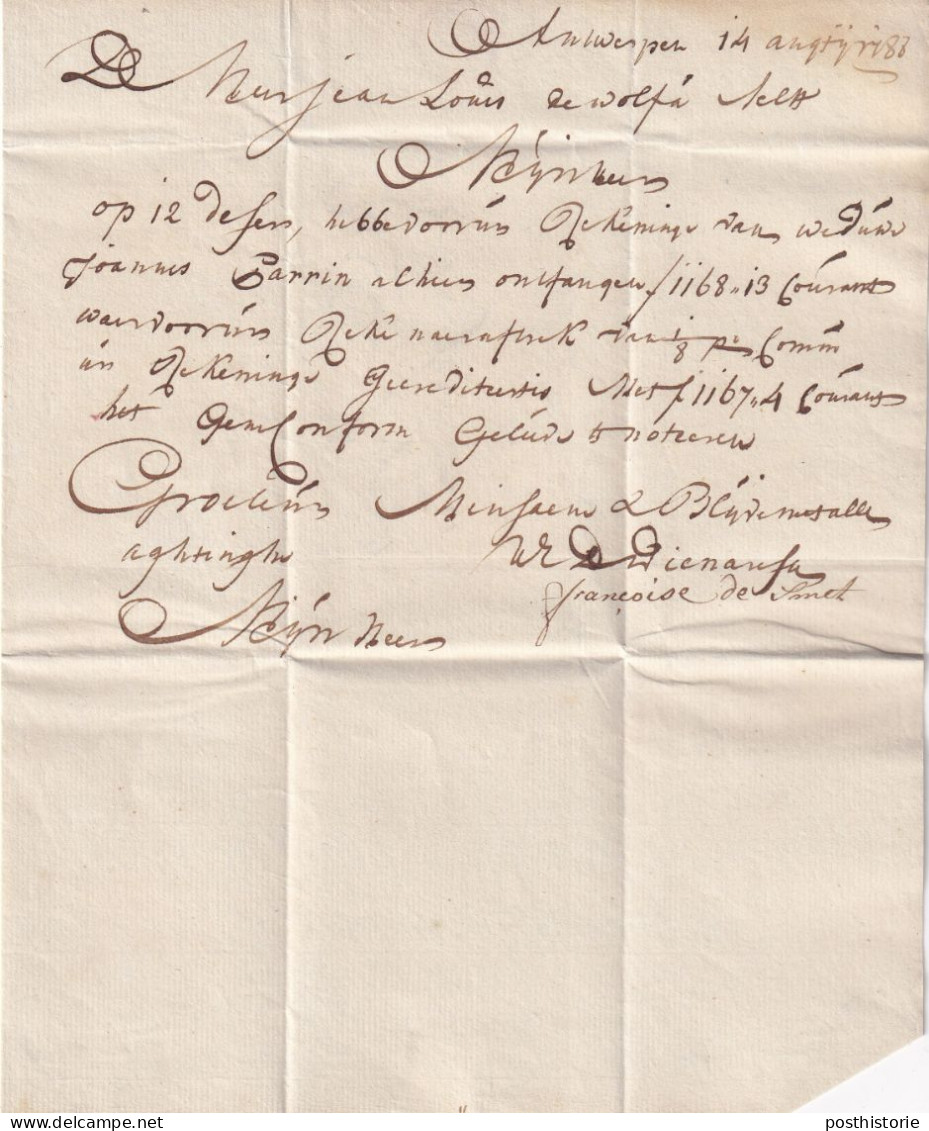 Antwerpen 14
D Heer Jean Louis de wolf á Aelst
Mijn heer
op 12 deser, hebbe voor uw Rekeninge van weduwe
Joannes Parrin alhier ontfangen f 1168,,13 Courant
waervoor uw Reke naer aftrek van 1/8 p Comm
in Rekeninge Gecrediteert is Met f 1167,,4 Courant
het Gem Conform Geliede te noteren
Groete uw Minsaem & Blijve met alle
aghtinghe UE Dw Dienaresse
françoise de Smet
Mijn Heer
posthistorie